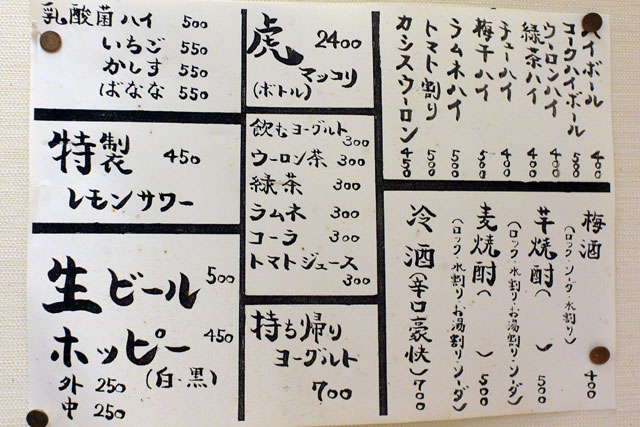 乳酸菌ハイ 500
いちご 550
かしす 550
ばなな 550
特製 450
レモンサワー
生ビール 500
ホッピー 450
(白・黒)
外 250
中 250
虎 2400
マッコリ
(ボトル)
飲むヨーグルト
300
ウーロン茶 300
緑茶 300
ラムネ 300
コーラ 300
トマトジュース
300
持ち帰り
ヨーグルト
700
ハイボール 400
コークハイボール 500
ウーロンハイ 400
緑茶ハイ 400
チューハイ 400
梅干ハイ 500
ラムネハイ 500
トマト割り 500
カシスウーロン 450
梅酒 (ロック・ソーダ・水割り) 400
芋焼酎 (ロック・水割り・お湯割り・ソーダ) 500
麦焼酎 (ロック・水割り・お湯割り・ソーダ) 500
冷酒 (辛口豪快) 700